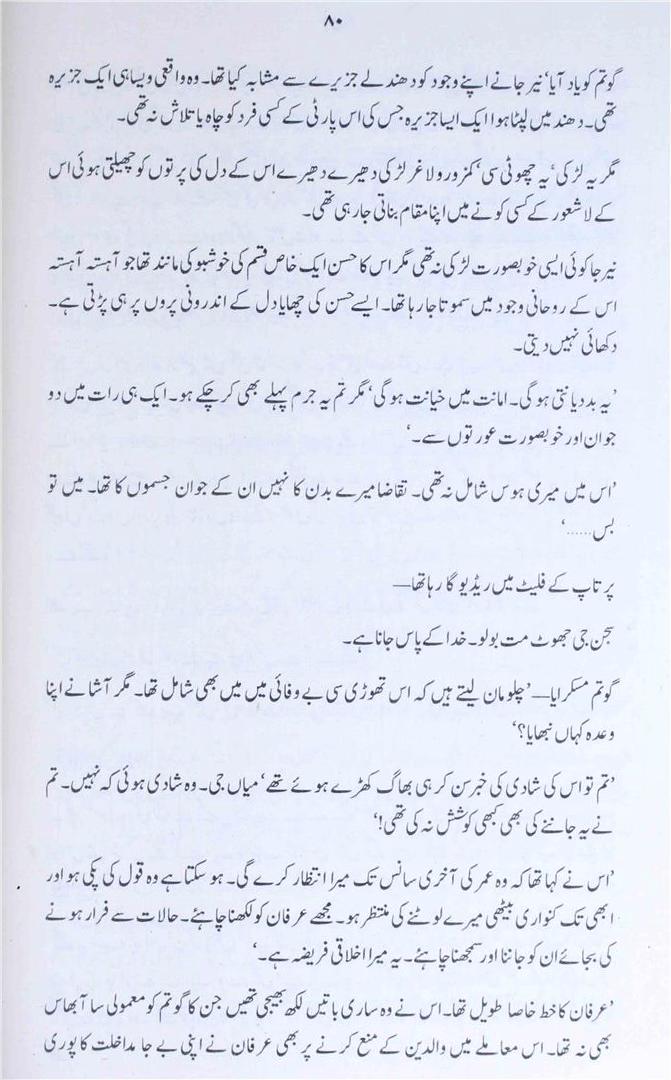 ۸۰
گوتم کو یاد آیا‘ نیر جانے اپنے وجود کو دھندلے جزیرے سے مشابہ کیا تھا۔ وہ واقعی ویسا ہی ایک جزیرہ
تھی۔ دھند میں لپٹا ہوا ایک ایسا جزیرہ جس کی اس پارٹی کے کسی فرد کو چاہ یا تلاش نہ تھی۔
مگر یہ لڑکی‘ یہ چھوٹی سی‘ کمزور و لاغر لڑکی دھیرے دھیرے اس کے دل کی پرتوں کو چھیلتی ہوئی اس
کے لاشعور کے کسی کونے میں اپنا مقام بناتی جا رہی تھی۔
نیر جا کوئی ایسی خوبصورت لڑکی نہ تھی مگر اس کا حسن ایک خاص قسم کی خوشبو کی مانند تھا جو آہستہ آہستہ
اس کے روحانی وجود میں سموتا جا رہا تھا۔ ایسے حسن کی چھایا دل کے اندرونی پروں پر ہی پڑتی ہے۔
دکھائی نہیں دیتی۔
’یہ بددیانتی ہوگی۔ امانت میں خیانت ہوگی‘ مگر تم یہ جرم پہلے بھی کر چکے ہو۔ ایک ہی رات میں دو
جوان اور خوبصورت عورتوں سے۔‘
’اس میں میری ہوس شامل نہ تھی۔ تقاضا میرے بدن کا نہیں ان کے جوان جسموں کا تھا۔ میں تو
بس......‘
پرتاپ کے فلیٹ میں ریڈیو گا رہا تھا—
سجن جی جھوٹ مت بولو۔ خدا کے پاس جانا ہے۔
گوتم مسکرایا—’چلو مان لیتے ہیں کہ اس تھوڑی سی بے وفائی میں میں بھی شامل تھا۔ مگر آشا نے اپنا
وعدہ کہاں نبھایا؟‘
’تم تو اس کی شادی کی خبر سن کر ہی بھاگ کھڑے ہوئے تھے‘ میاں جی۔ وہ شادی ہوئی کہ نہیں۔ تم
نے یہ جاننے کی بھی کبھی کوشش نہ کی تھی!‘
’اس نے کہا تھا کہ وہ عمر کی آخری سانس تک میرا انتظار کرے گی۔ ہو سکتا ہے وہ قول کی پکی ہو اور
ابھی تک کنواری بیٹھی میرے لوٹنے کی منتظر ہو۔ مجھے عرفان کو لکھنا چاہئے۔ حالات سے فرار ہونے
کی بجائے ان کو جاننا اور سمجھنا چاہئے۔ یہ میرا اخلاقی فریضہ ہے۔‘
’عرفان کا خط خاصا طویل تھا۔ اس نے وہ ساری باتیں لکھ بھیجی تھیں جن کا گوتم کو معمولی سا آبھاس
بھی نہ تھا۔ اس معاملے میں والدین کے منع کرنے پر بھی عرفان نے اپنی بے جا مداخلت کا پوری